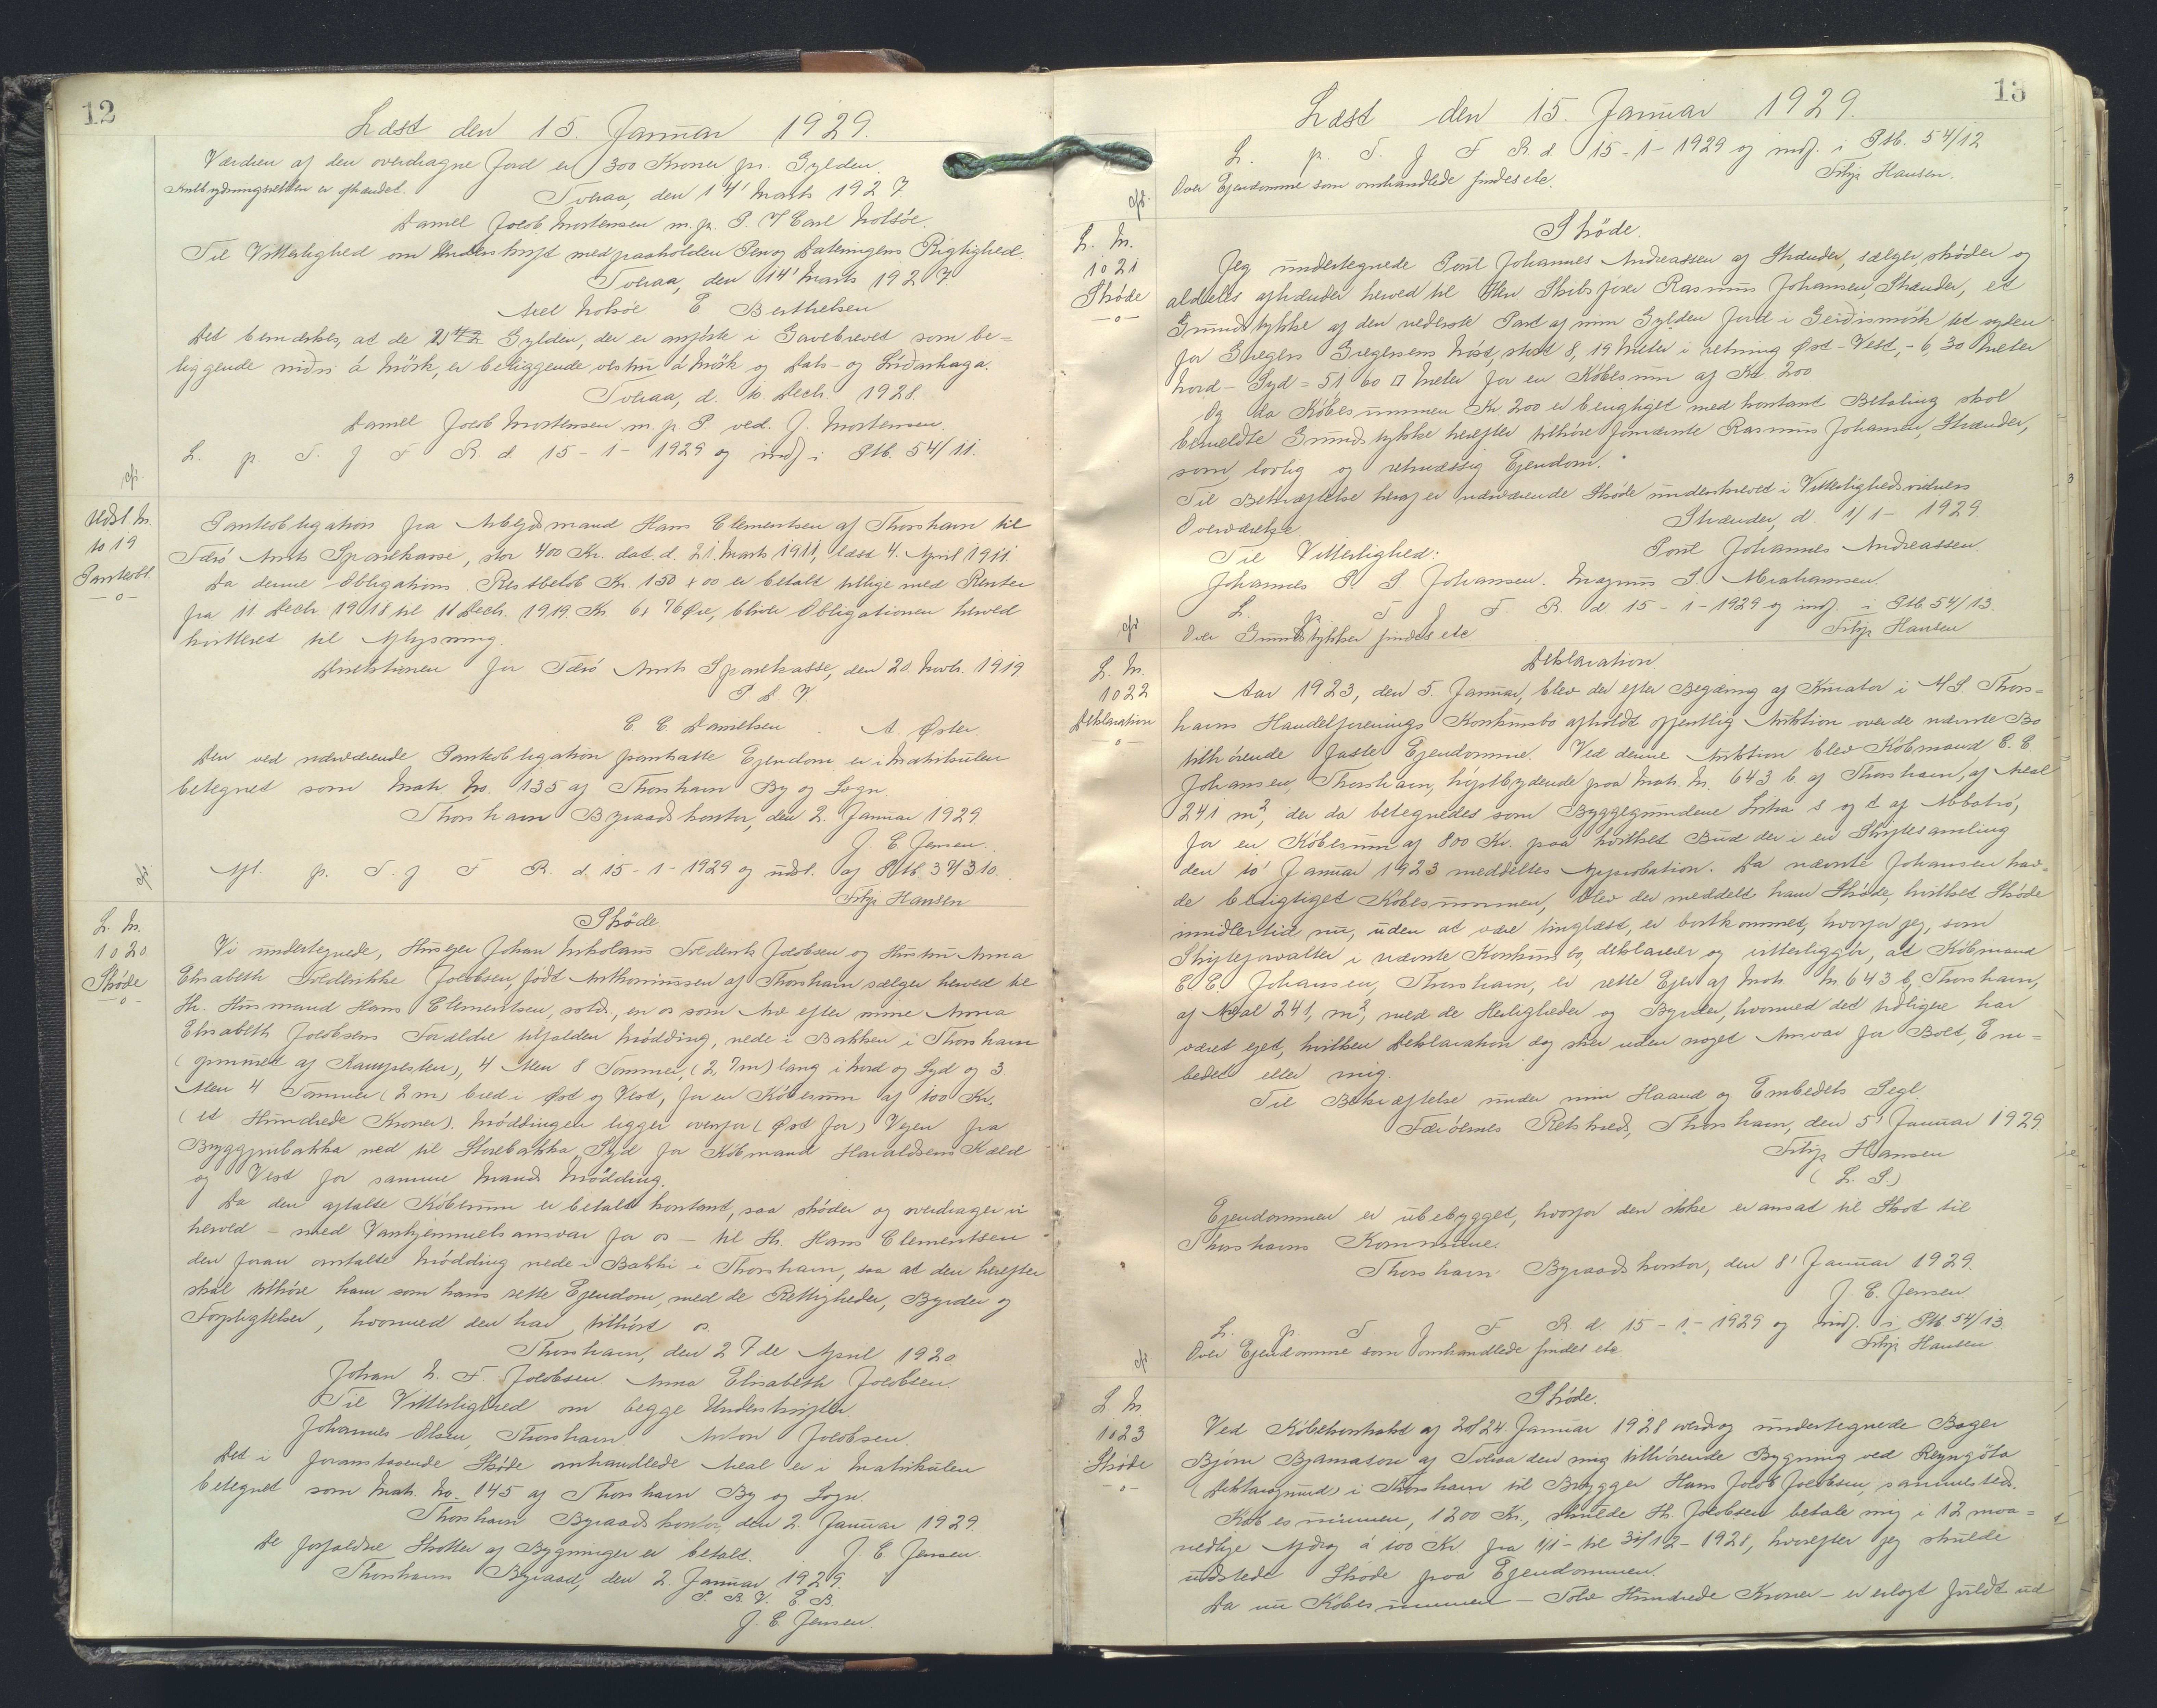 12
Læst den 15. Januar 1929.
Værdien af den overdragne Jord er 300 Kroner pr. Gylden.
er afhændet.
Tveraa, den 14' Marts 1927
Daniel Jacob Mortensen m. p. P. V Carl Holsöe.
Til Vitterlighed om Underskrift med paaholden Pen og Dateringens Rigtighed.
Tveraa, den 14' Marts 1927.
Axel Holsöe E Berthelsen
Det bemærkes, at de Gylden, der er anförte i Gavebrevet som be=
liggende niðri á Mörk, er beliggende á Mörk og Dals- og Líðarhaga.
Tveraa, d. 10. Decb. 1928.
Daniel Jacob Mortensen m. p. P ved. J. Mortensen.
L. p. T. f F R. d. 15-1-1929 og indf. i Ptb. 54/11.
Udsl. Nr.
1019
Panteobl.
-o-
Panteobligation fra Arbejdsmand Hans Clementsen af Thorshavn til
Færö Amts Sparekasse, stor 400 Kr. dat. d. 21. Marts 1911, læst 4. April 1911.
Da denne Obligations Restbelöb Kr. 150 + 00 er betalt tillige med Renter
fra 11 Decb. 1918 til 11 Decb. 1919 Kr. 6, 76 Öre, bliver Obligationen herved
kvitteret til Aflysning.
Direktionen for Færö Amts Sparekasse, den 20. Novb. 1919
P D V.
C C Danielsen. A. Öster.
Den ved nærværende Panteobligation pantsatte Ejendom er i Matrikulen
betegnet som Matr. No. 135 af Thorshavn By og Sogn.
Thorshavn Byraadskontor, den 2. Januar 1929.
J. E Jensen.
Afl. p. T. f F R. d. 15-1-1929 og udsl. af Ptb. 37/310.
Filip Hansen
L. Nr.
1020
Sköde
-o-
Sköde.
Vi undertegnede, Husejer Johan Nikolaus Frederik Jacobsen og Hustru Anna
Elisabeth Frederikke Jacobsen, födt Anthoniussen af Thorshavn sælger herved til
Hr. Husmand Hans Clementsen, sstds., en os som Arv efter mine Anna
Elisabeth Jacobsens Forældre tilfalden Mödding, nede i Bakken i Thorshavn
af 4 Alen 8 Tommer, (2,7m) lang i Nord og Syd og 3
Alen 4 Tommer (2 m) bred i Öst og Vest, for en Köbesum af 100 Kr.
(et Hundrede Kroner). Möddingen ligger ovenfor (Öst for) Vejen fra
Bryggjubakka ned til Storebakka, Syd for Köbmand Haraldsens Kæld
og Vest for samme Mands Mödding.
Da den aftalte Köbesum er betalt kontant, saa sköder og overdrager vi
herved - med Vanhjemmelsansvar for os - til Hr. Hans Clementsen
den foran omtalte Mödding nede i Bakki i Thorshavn, saa at den herefter
skal tilhöre ham som hans rette Ejendom, med de Rettigheder, Byrder og
Forpligtelser, hvormed den har tilhört os.
Thorshavn, den 27de April 1920.
Johan N. F. Jacobsen Anna Elisabeth Jacobsen.
Til Vitterlighed om begge Underskrifter.
Johannes Olsen, Thorshavn. Anton Jacobsen.
Det i foranstaaende Sköde omhandlede Areal er i Matrikulen
betegnet som Matr. No. 145 af Thorshavn By og Sogn.
Thorshavn Byraadskontor, den 2. Januar 1929.
De forfaldne Skatter af Bygninger er betalt. J E Jensen.
Thorshavns Byraad, den 2. Januar 1929.
P. B. V. E B.
J. E Jensen.
13
Læst den 15. Januar 1929.
L. p. T. f F R. d. 15-1-1929 og indf. i Ptb. 54/12
Over Ejendomme som omhandlede findes etc. Filip Hansen.
L. Nr.
1021
Sköde
-o-
Sköde.
Jeg undertegnede Poul Johannes Andreassen af Skænder, sælger, sköder og
aldeles afhænder herved til Hr Skibsförer Rasmus Johansen, Skænder, et
Grundstykke af den nederste Part af min Gylden Jord i Geiðismörk lit syden
for Gregers Gregersens Nöst, stort 8,19 Meter i retning Öst-Vest, - 6,30 Meter
Nord-Syd = 51 60 □ Meter for en Köbesum af Kr. 200
Og da Köbesummen Kr 200 er berigtiget med kontant Betaling skal
bemeldte Grundstykke herefter tilhöre fornævnte Rasmus Johansen, Skænder,
som lovlig og retmæssig Ejendom.
Til Bekræftelse heraf er nærværende Sköde underskrevet i Vitterlighedsvidners
Overværelse. Skænder, d. 1/1 - 1929
Til Vitterlighed: Poul Johannes Andreassen.
Johannes P. S Johansen. Magnus S. Abrahamsen.
L. p. T f F. R. d. 15-1-1929 og indf. i Ptb 54/13.
Over Grundstykker findes etc Filip Hansen
L. Nr.
1022
Deklaration
-o-
Deklaration
Aar 1923, den 5. Januar, blev der efter Begæring af Kurator i A/S. Thors=
havns Handelforenings Konkursbo afholdt offentlig Auktion over de nævnte Bo
tilhörende faste Ejendomme. Ved denne Auktion blev Köbmand E. E.
Johansen, Thorshavn, höjstbydende paa Matr. Nr. 643 b af Thorshavn, af Areal
241 m², der da betegnedes som Byggegrundene Litra s og t af
for en Köbesum af 800 Kr. paa hvilket Bud der i en Skiftesamling
den 10' Januar 1923 meddeltes Approbation. Da nævnte Johansen hav=
de berigtiget Köbesummen, blev der meddelt ham Sköde, hvilket Sköde
imidlertid nu, uden at være tinglæst, er bortkommet, hvorfor jeg, som
Skifteforvalter i nævnte Konkursbo, deklarerer og vitterliggör, at Köbmand
E E Johansen, Thorshavn, er rette Ejer af Matr. Nr 643 b, Thorshavn,
af Areal 241, m², med de Herligheder og Byrder, hvormed det tidligere har
været ejet, hvilken Deklaration dog sker uden noget Ansvar for Boet, Em=
bedet eller mig.
Til Bekræftelse under min Haand og Embedets Segl
Færöernes Retskreds, Thorshavn, den 5' Januar 1929.
Filip Hansen
(L. S.)
Ejendommen er ubebygget, hvorfor den ikke er ansat til Skat til
Thorshavns Kommune.
Thorshavn Byraadskontor, den 8' Januar 1929.
J. E. Jensen.
L. p. T f F R d. 15-1-1929 og indf. i Ptb 54/13.
Over Ejendomme som omhandlede findes etc. Filip Hansen
L. Nr.
1023
Sköde
-o-
Sköde.
Ved Köbekontrakt af 20/24 Januar 1928 overdrog undertegnede Bager
Björn Bjarnason af Tveraa den mig tilhörende Bygning ved Reyngöta
i Thorshavn til Brygger Hans Jacob Jacobsen, sammesteds.
Köbesummen, 1200 Kr., skulde Hr. Jacobsen betale mig i 12 maa=
nedlige Afdrag á 100 Kr fra 1/1 - til 31/12 - 1928, hvorefter jeg skulde
udstede Sköde paa Ejendommen.
Da nu Köbesummen - Tolv Hundrede Kroner - er erlagt fuldt ud